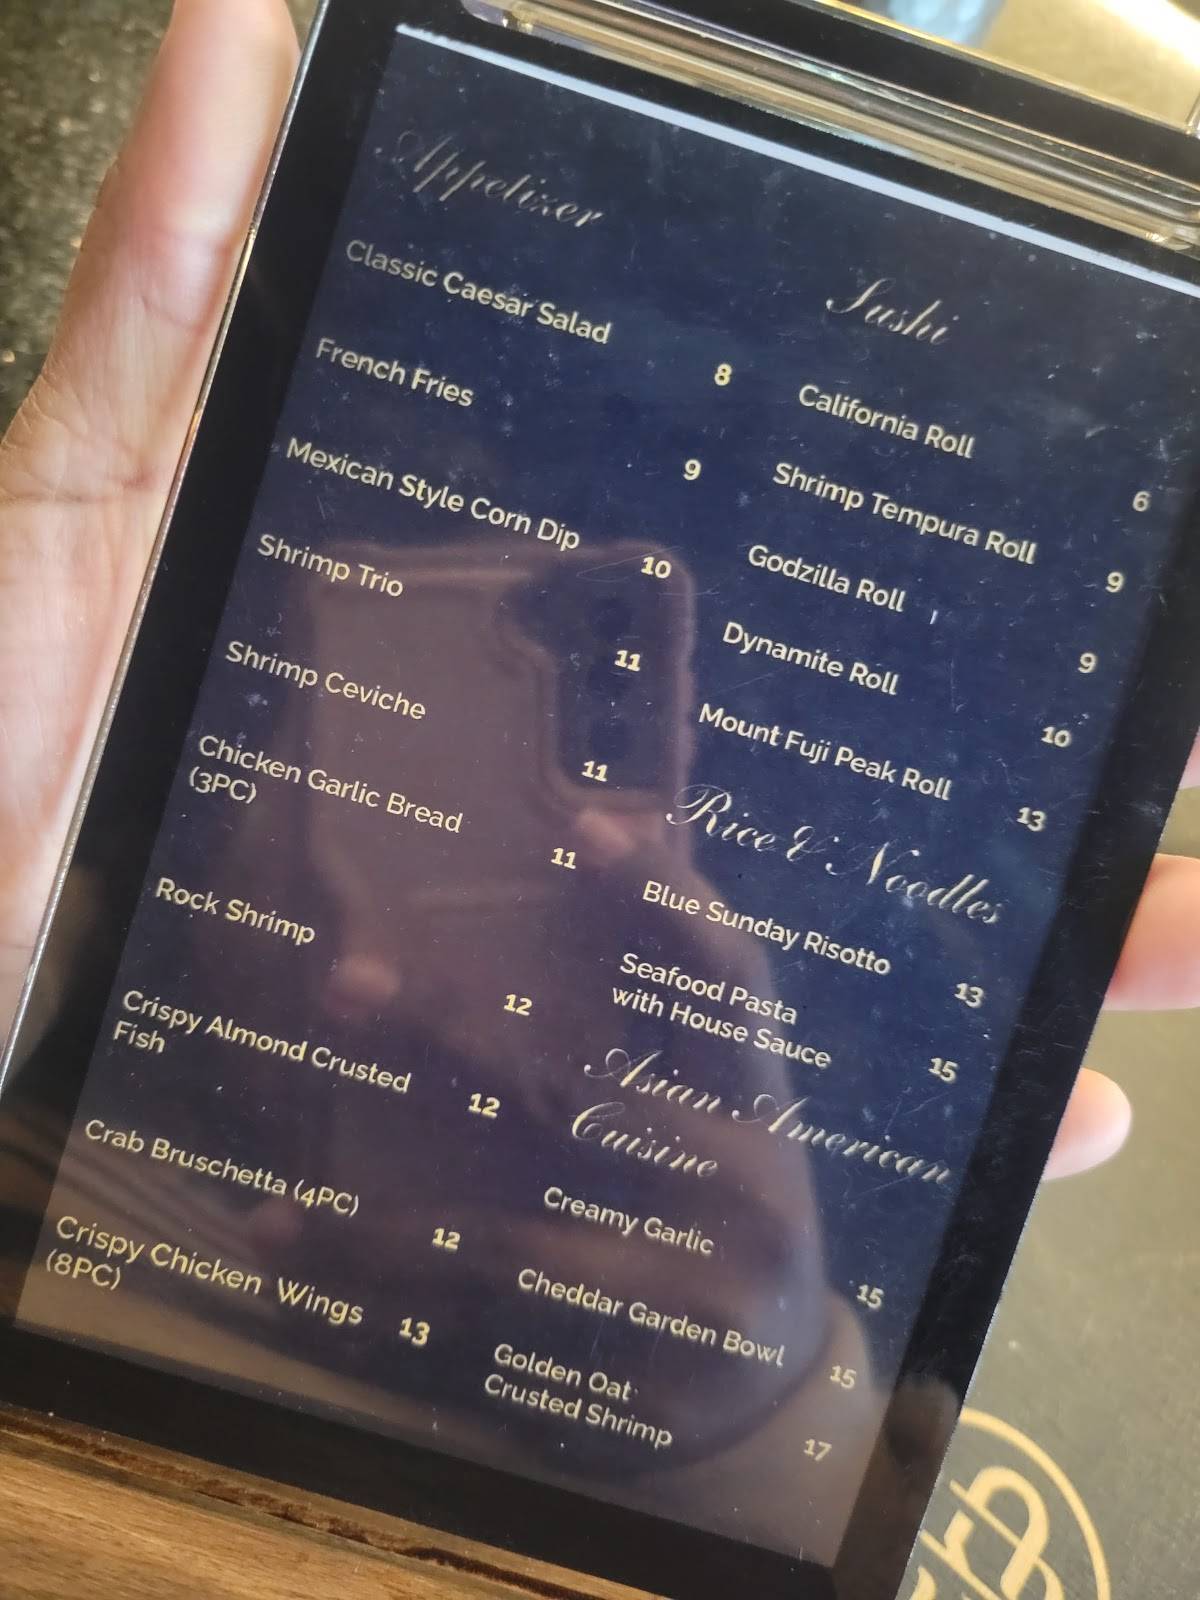 Appetizer
Classic Caesar Salad 8
French Fries 9
Mexican Style Corn Dip 10
Shrimp Trio 11
Shrimp Ceviche 11
Chicken Garlic Bread 11
(3PC)
Rock Shrimp 12
Crispy Almond Crusted 12
Fish
Crab Bruschetta (4PC) 12
Crispy Chicken Wings 13
(8PC)
Sushi
California Roll 6
Shrimp Tempura Roll 9
Godzilla Roll 9
Dynamite Roll 10
Mount Fuji Peak Roll 13
Rice & Noodles
Blue Sunday Risotto 13
Seafood Pasta
with House Sauce 15
Asian American
Cuisine
Creamy Garlic 15
Cheddar Garden Bowl 15
Golden Oat
Crusted Shrimp 17